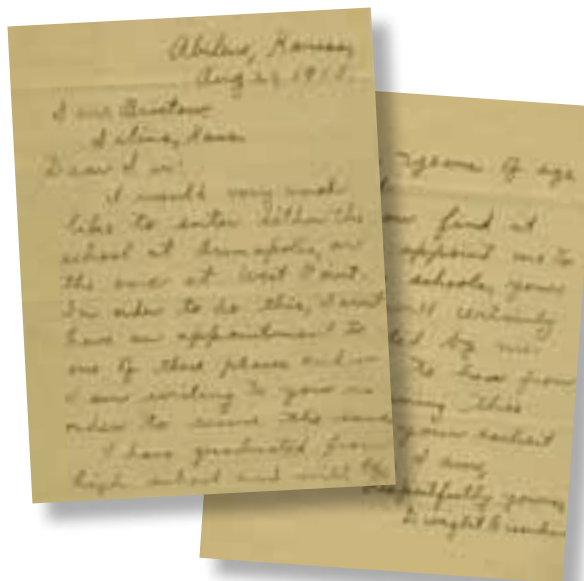 Abilene, Kansas,
Aug 20, 1910.
Sen. Bristow
Salina, Kans.
Dear Sir:
I would very much
like to enter either the
school at Annapolis, or
the one at West Point.
In order to do this, I must
have an appointment to
one of these places and so
I am writing to you in
order to secure the same.
I have graduated from
high school and will be
years of age
find at
appoint me to
schools, your
will certainly
by me.
to hear from
this
your earliest
I am,
Respectfully yours,
Dwight Eisenhower